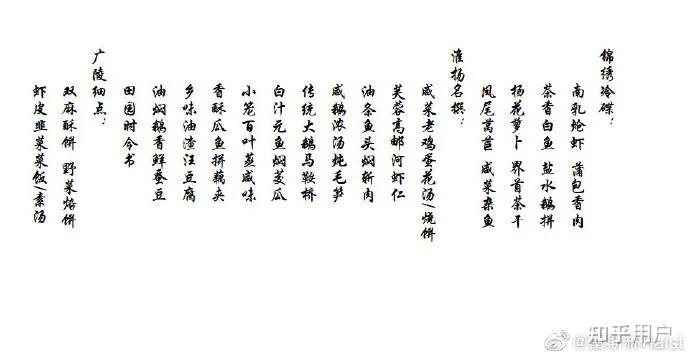 锦绣冷碟：
南乳炝虾 蒲包香肉
茶香白鱼 盐水鹅拼
杨花萝卜 界首茶干
凤尾莴苣 咸菜杂鱼
淮扬名撰：
咸菜老鸡蛋花汤/烧饼
芙蓉高邮河虾仁
油条鱼头焖斩肉
咸鹅浓汤炖毛笋
传统大鹅马鞍桥
白汁元鱼焖芰瓜
小笼百叶蒸咸味
香酥瓜鱼拼藕夹
乡味油渣汪豆腐
油焖鹅香鲜蚕豆
田园时令书
广陵细点：
双麻酥饼 野菜烙饼
虾皮韭菜菜饭/素汤
知乎用户